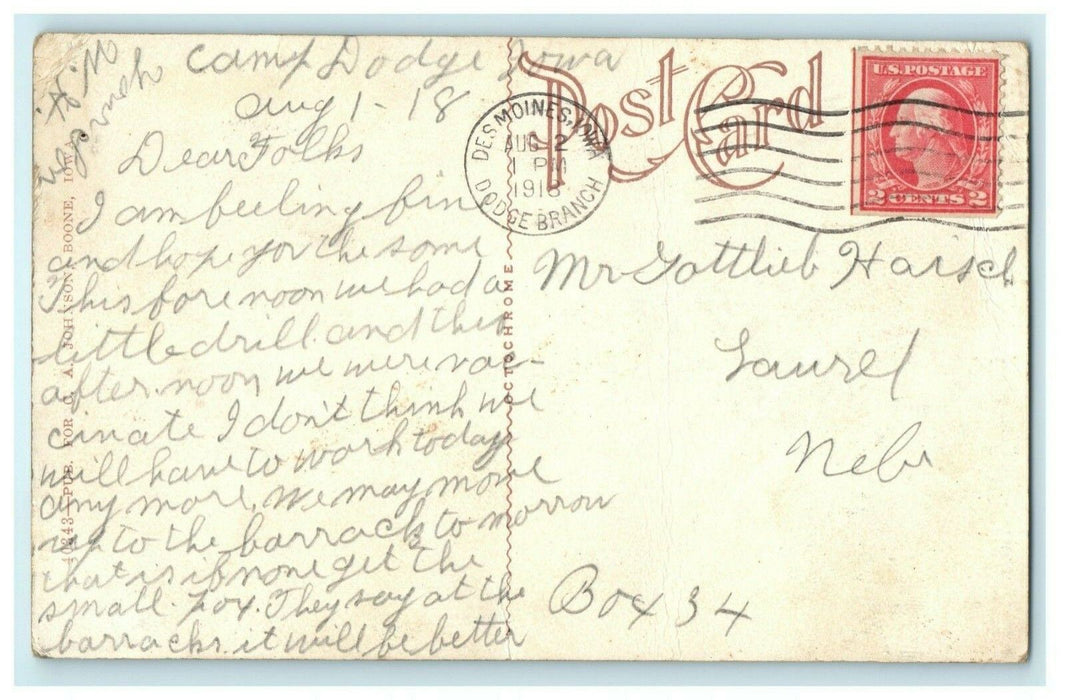 Camp Dodge Iowa
Aug 1-18
Dear Folks
I am feeling fine
and hope you the same
This fore noon we had a
little drill and this
after noon we were vac-
cinate I don't think we
will have to work today
any more. We may move
up to the barracks to morrow
that is if none get the
small pox. They say at the
barracks it will be better
Post Card
DES MOINES, IOWA
AUG 2
1 PM
1918
DODGE BRANCH
U.S. POSTAGE
2 CENTS 2
Mr Gottlieb Haisch
Laurel
Nebr
Box 34
40243-PUB. FOR C. A. JOHNSON, BOONE, IOWA
OCTOCHROME